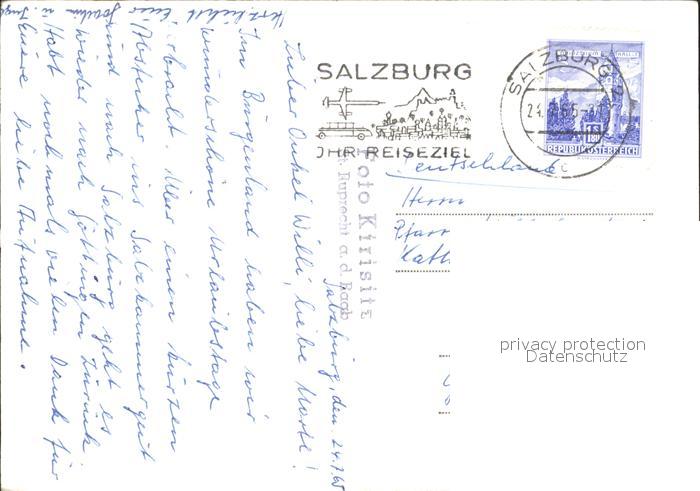 Salzburg, den 24.7.65
Lieber Onkel Willi, liebe Marte!
Im Burgenland haben wir
wunderschöne Urlaubstage
verbracht. Über einen kurzen
Abstecher ins Salzkammergut
und nach Salzburg geht es
wieder nach Göttingen zurück.
Habt nochmals vielen Dank für
Eure liebe Aufnahme.
Herzlichst Eure
Joachim u. Inge
Foto Kirisitz
St. Ruprecht a. d. Raab
SALZBURG
IHR REISEZIEL
SALZBURG 2
REPUBLIK ÖSTERREICH
1.80
Deutschland
Herrn
Pfarr
Kath.
privacy protection
Datenschutz